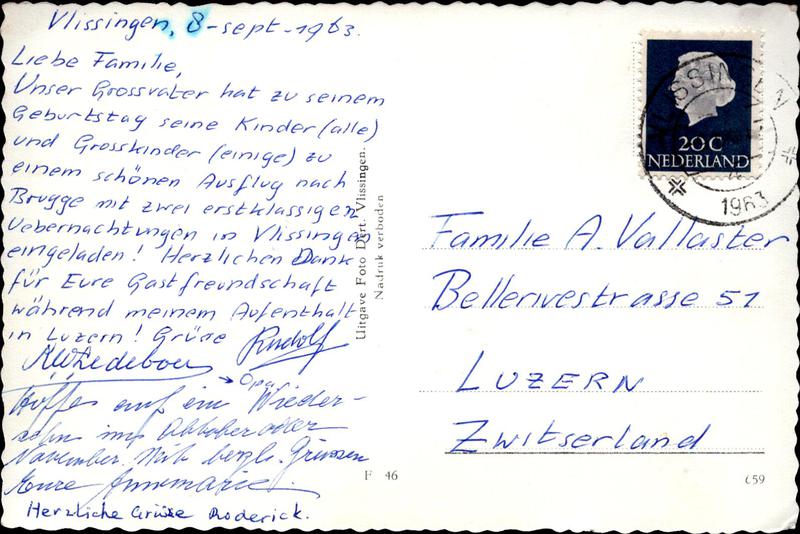 Vlissingen, 8-sept-1963.
Liebe Familie,
Unser Grossvater hat zu seinem
Geburtstag seine Kinder (alle)
und Grosskinder (einige) zu
einem schönen Ausflug nach
Brugge mit zwei erstklassigen
Uebernachtungen in Vlissingen
eingeladen! Herzlichen Dank
für Eure Gastfreundschaft
während meinem Aufenthalt
in Luzern! Grüse Rudolf
→ Opa
Hoffe auf ein Wieder-
sehn im Oktober oder
November. Mit herzl. Grüssen
Eure Annemarie.
Herzliche Grüse Roderick.
Uitgave Foto Dert. Vlissingen.
Nadruk verboden
F 46
20 C
NEDERLAND
VLISSINGEN
1963
Familie A. Vallaster
Bellerivestrasse 51
LUZERN
Zwitserland
659